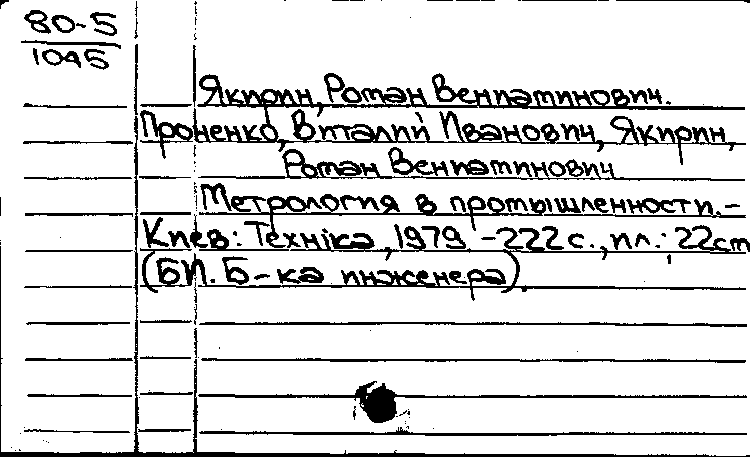 80-5
1045
Якирин, Роман Вениаминович.
Проненко, Виталий Иванович, Якирин,
Роман Вениаминович
Метрология в промышленности.-
Киев: Техніка, 1979 -222 с., ил.; 22см
(БИ. Б-ка инженера).